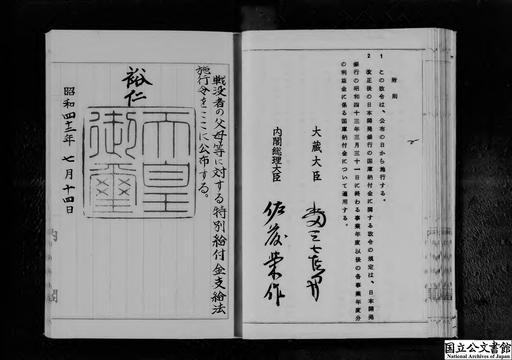 附則
1 この政令は、公布の日から施行する。
2 改正後の日本開発銀行の国庫納付金に関する政令の規定は、日本開発
銀行の昭和四十三年三月三十一日に終わる事業年度以後の各事業年度分
の利益金に係る国庫納付金について適用する。
大蔵大臣 水田三喜男
内閣総理大臣 佐藤榮作
戦没者の父母等に対する特別給付金支給法
施行令をここに公布する。
裕仁
天皇
御璽
昭和四十二年七月十四日
国立公文書館
National Archives of Japan